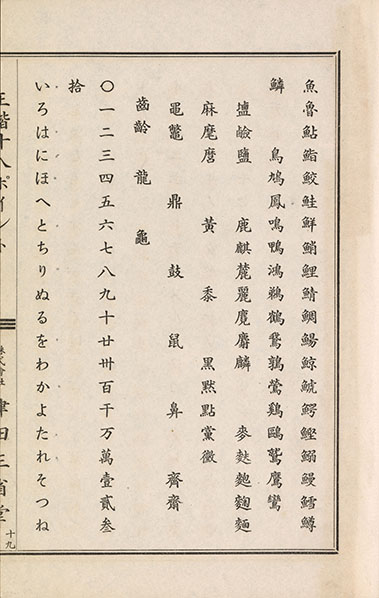 魚魯鮎鮨鮫鮭鮮鮹鯉鯖鯛鰑鯨鯱鰐鰹鰯鰻鱈鱒
鱗 鳥鳩鳳鳴鴨鴻鵜鶴鵞鶉鶯鷄鷗鷲鷹鸞
鹼鹽 鹿麒麓麗麑麝麟 麥麩麭麴麵
麻麾麿 黃 黍 黑默點黨黴
黽鼈 鼎 鼓 鼠 鼻 齊齋
齒齡 龍 龜
〇一二三四五六七八九十廿卅百千万萬壹貳叁
拾
いろはにほへとちりぬるをわかよたれそつね
正楷十八ポイント 株式會社 津田三省堂 十九